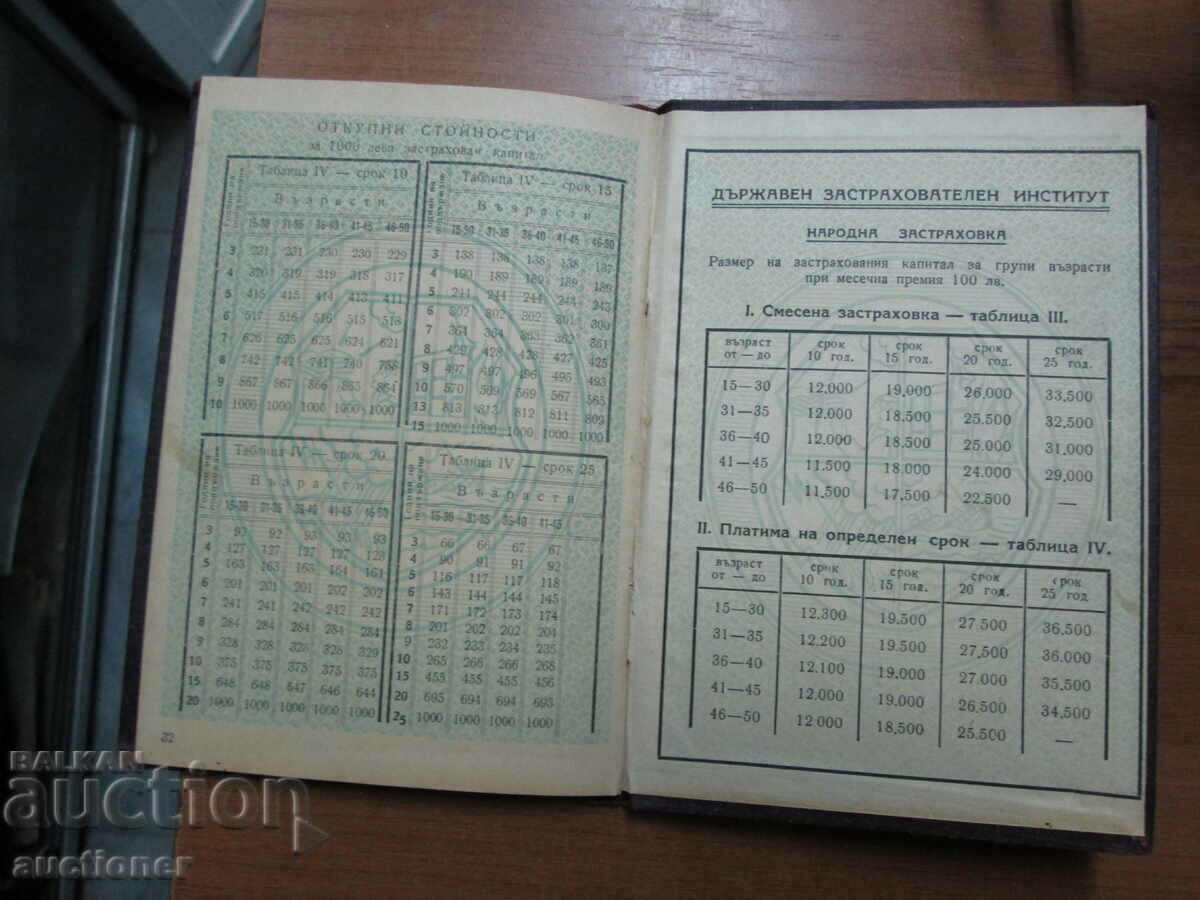 ОТКУПНИ СТОЙНОСТИ
за 1000 лева застрахован капитал
Таблица IV — срок 10
Възрасти
15-30 31-35 36-40 41-45 46-50
3 231 230 230 229
4 320 319 319 318 317
5 415 415 414 413 411
6 517 516 516 515
7 626 625 625 624 621
8 742 742 741 740
9 867 867 866 865 864
10 1000 1000 1000 1000 1000
Таблица IV — срок 15
Възрасти
15-30 31-35 36-40 41-45 46-50
3 138 138 138 138 137
4 190 189 189 189 189
5 244 244 244 244 243
6 302 302 302 301 300
7 364 364 363 362 361
8 429 428 428 427 425
9 497 497 496 495 493
10 570 569 569 567 565
13 813 813 812 811 809
15 1000 1000 1000 1000 1000
Таблица IV — срок 20
Възрасти
15-30 31-35 36-40 41-45 46-50
3 92 92 93 93 93
4 127 127 127 127 128
5 163 163 163 164 164
6 201 201 201 202 202
7 241 241 242 242 242
8 284 284 284 284 284
9 328 328 328 328 329
10 375 375 375 375 375
15 648 648 647 647 646
20 1000 1000 1000 1000 1000
Таблица IV — срок 25
Възрасти
15-30 31-35 36-40 41-45
3 66 66 67 67
4 90 91 91 92
5 116 117 117 118
6 143 144 144 145
7 171 172 173 174
8 201 202 202 204
9 232 233 234 235
10 265 266 266 268
15 455 455 455 456
20 695 694 694 693
25 1000 1000 1000 1000
32
ДЪРЖАВЕН ЗАСТРАХОВАТЕЛЕН ИНСТИТУТ
НАРОДНА ЗАСТРАХОВКА
Размер на застрахования капитал за групи възрасти
при месечна премия 100 лв.
I. Смесена застраховка — таблица III.
възраст срок срок срок срок
от — до 10 год. 15 год. 20 год. 25 год.
15—30 12.000 19.000 26.000 33.500
31—35 12.000 18.500 25.500 32.500
36—40 12.000 18.500 25.000 31.000
41—45 11.500 18.000 24.000 29,000
46—50 11,500 17.500 22.500 —
II. Платима на определен срок — таблица IV.
възраст срок срок срок срок
от — до 10 год. 15 год. 20 год. 25 год
15—30 12.300 19.500 27.500 36.500
31—35 12.200 19.500 27,500 36.000
36—40 12.100 19.000 27.000 35,500
41—45 12.000 19.000 26,500 34,500
46—50 12.000 18,500 25.500 —
BALKAN
auction
auctioner